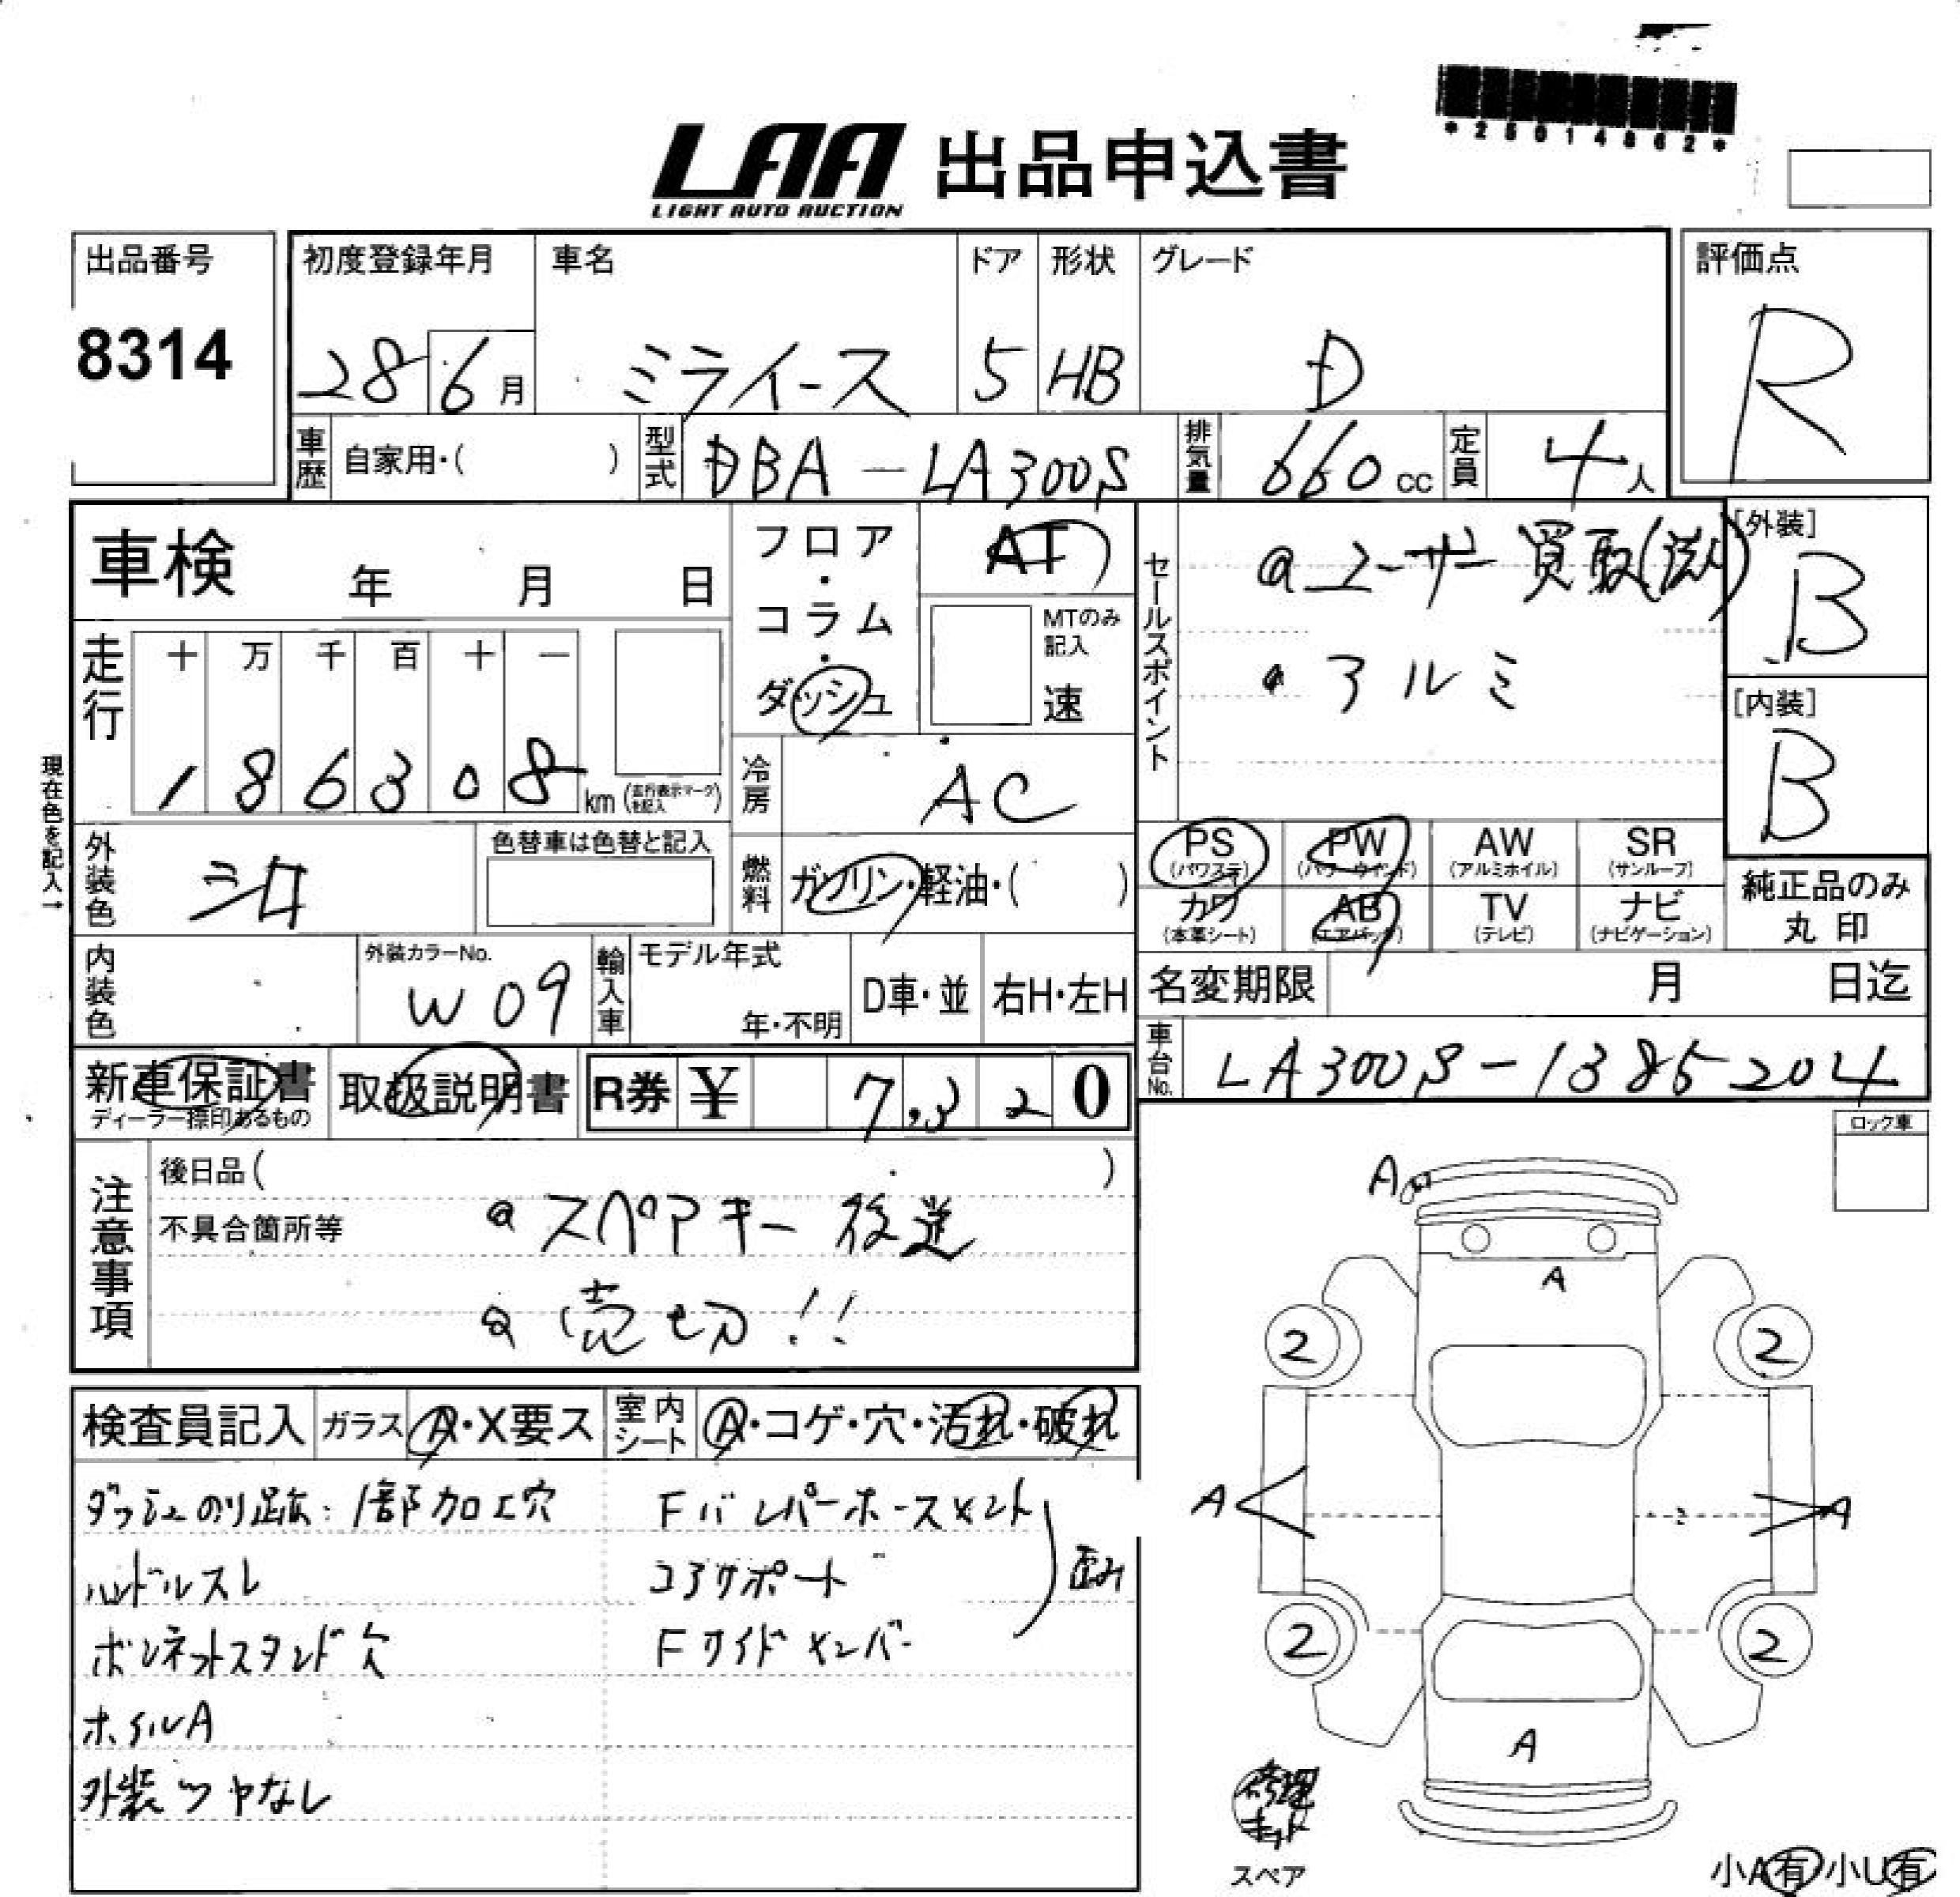 *25014862*
LAA 出品申込書
LIGHT AUTO AUCTION
出品番号
8314
初度登録年月
28 6月
車名
ミライース
ドア
5
形状
HB
グレード
D
評価点
R
車歴 自家用・( )
型式 DBA-LA300S
排気量 660cc
定員 4人
車検 年 月 日
フロア・コラム・ダッシュ
AT
MTのみ記入
速
セールスポイント
ユーザー買取(法人)
アルミ
[外装]
B
[内装]
B
走行
十 万 千 百 十 一
1 8 6 3 0 8 km (走行表示マークを記入)
冷房 AC
現在色を記入→
外装色 シロ
色替車は色替と記入
燃料 ガソリン・軽油・( )
PS (パワステ)
PW (パワーウインド)
AW (アルミホイル)
SR (サンルーフ)
カワ (本革シート)
AB (エアバッグ)
TV (テレビ)
ナビ (ナビゲーション)
純正品のみ
丸印
内装色
外装カラーNo.
W09
輸入車
モデル年式
年・不明
D車・並
右H・左H
名変期限 月 日迄
車台No. LA300S-1385204
新車保証書
ディーラー捺印あるもの
取扱説明書
R券 ¥ 7,320
ロック車
注意事項
後日品( )
不具合箇所等
スペアキー後送
売切!!
検査員記入
ガラス A・X要ス
室内シート A・コゲ・穴・汚れ・破れ
ダッシュのり跡:1部加工穴
ハンドルスレ
ボンネットスタンド欠
ホイルA
外装ツヤなし
Fバンパーホースメント
コアサポート
Fサイドメンバー
歪み
A
A
2
2
A
A
2
2
A
修理キット
スペア
小A有 小U有